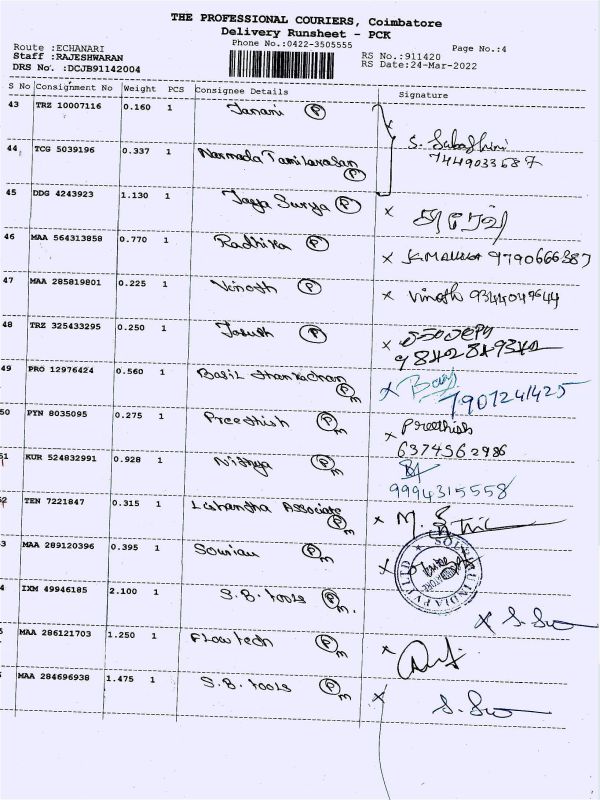 THE PROFESSIONAL COURIERS, Coimbatore
Delivery Runsheet - PCK
Phone No.:0422-3505555
Page No.:4
Route :ECHANARI
Staff :RAJESHWARAN
DRS No. :DCJB91142004
RS No.:911420
RS Date:24-Mar-2022
S No Consignment No Weight PCS Consignee Details Signature
43 TRZ 10007116 0.160 1 Janani P
S. Subashini
7449033687
44 TCG 5039196 0.337 1 Narmada Tamilarasan P
45 DDG 4243923 1.130 1 Jaya Surya P x
46 MAA 564313858 0.770 1 Radhika P x 9790666387
47 MAA 285819801 0.225 1 Vinoth P x Vinoth
48 TRZ 325433295 0.250 1 P x
49 PRO 12976424 0.560 1 Basil P m x
7907241425
50 PYN 8035095 0.275 1 Preethish P m x Preethish
6374562986
51 KUR 524832991 0.928 1 Nithya P m
9994315558
52 TEN 7221847 0.315 1 Associate P m x M.
3 MAA 289120396 0.395 1 P m x
4 IXM 49946185 2.100 1 S.B. tools P m. x
MAA 286121703 1.250 1 Flowtech P m x
MAA 284696938 1.475 1 S.B. tools P m x